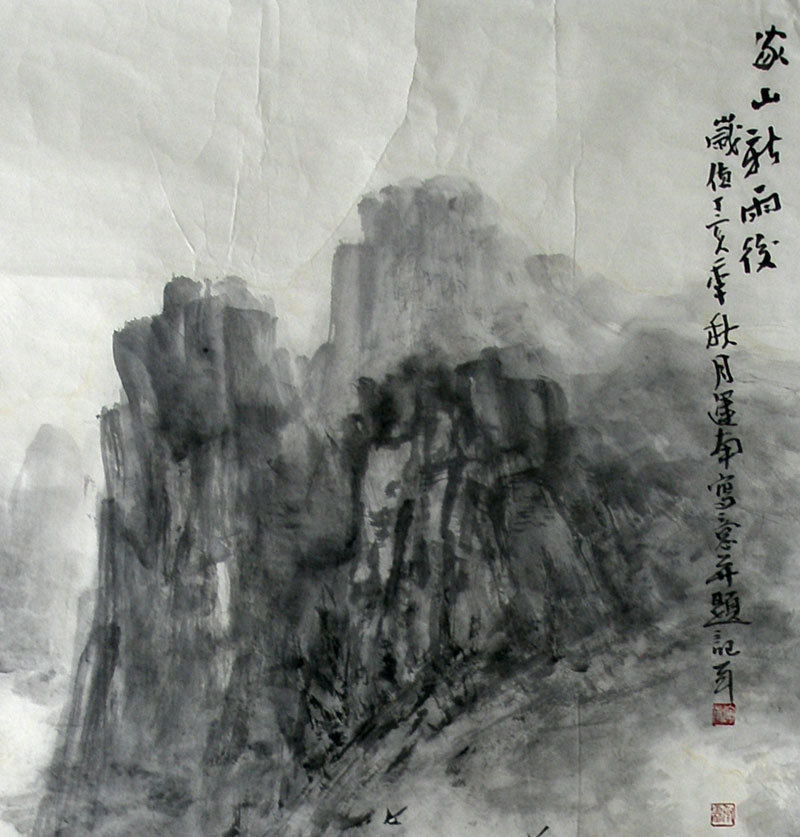 家山新雨後
歲值丁亥年秋月運南寫意并題記耳